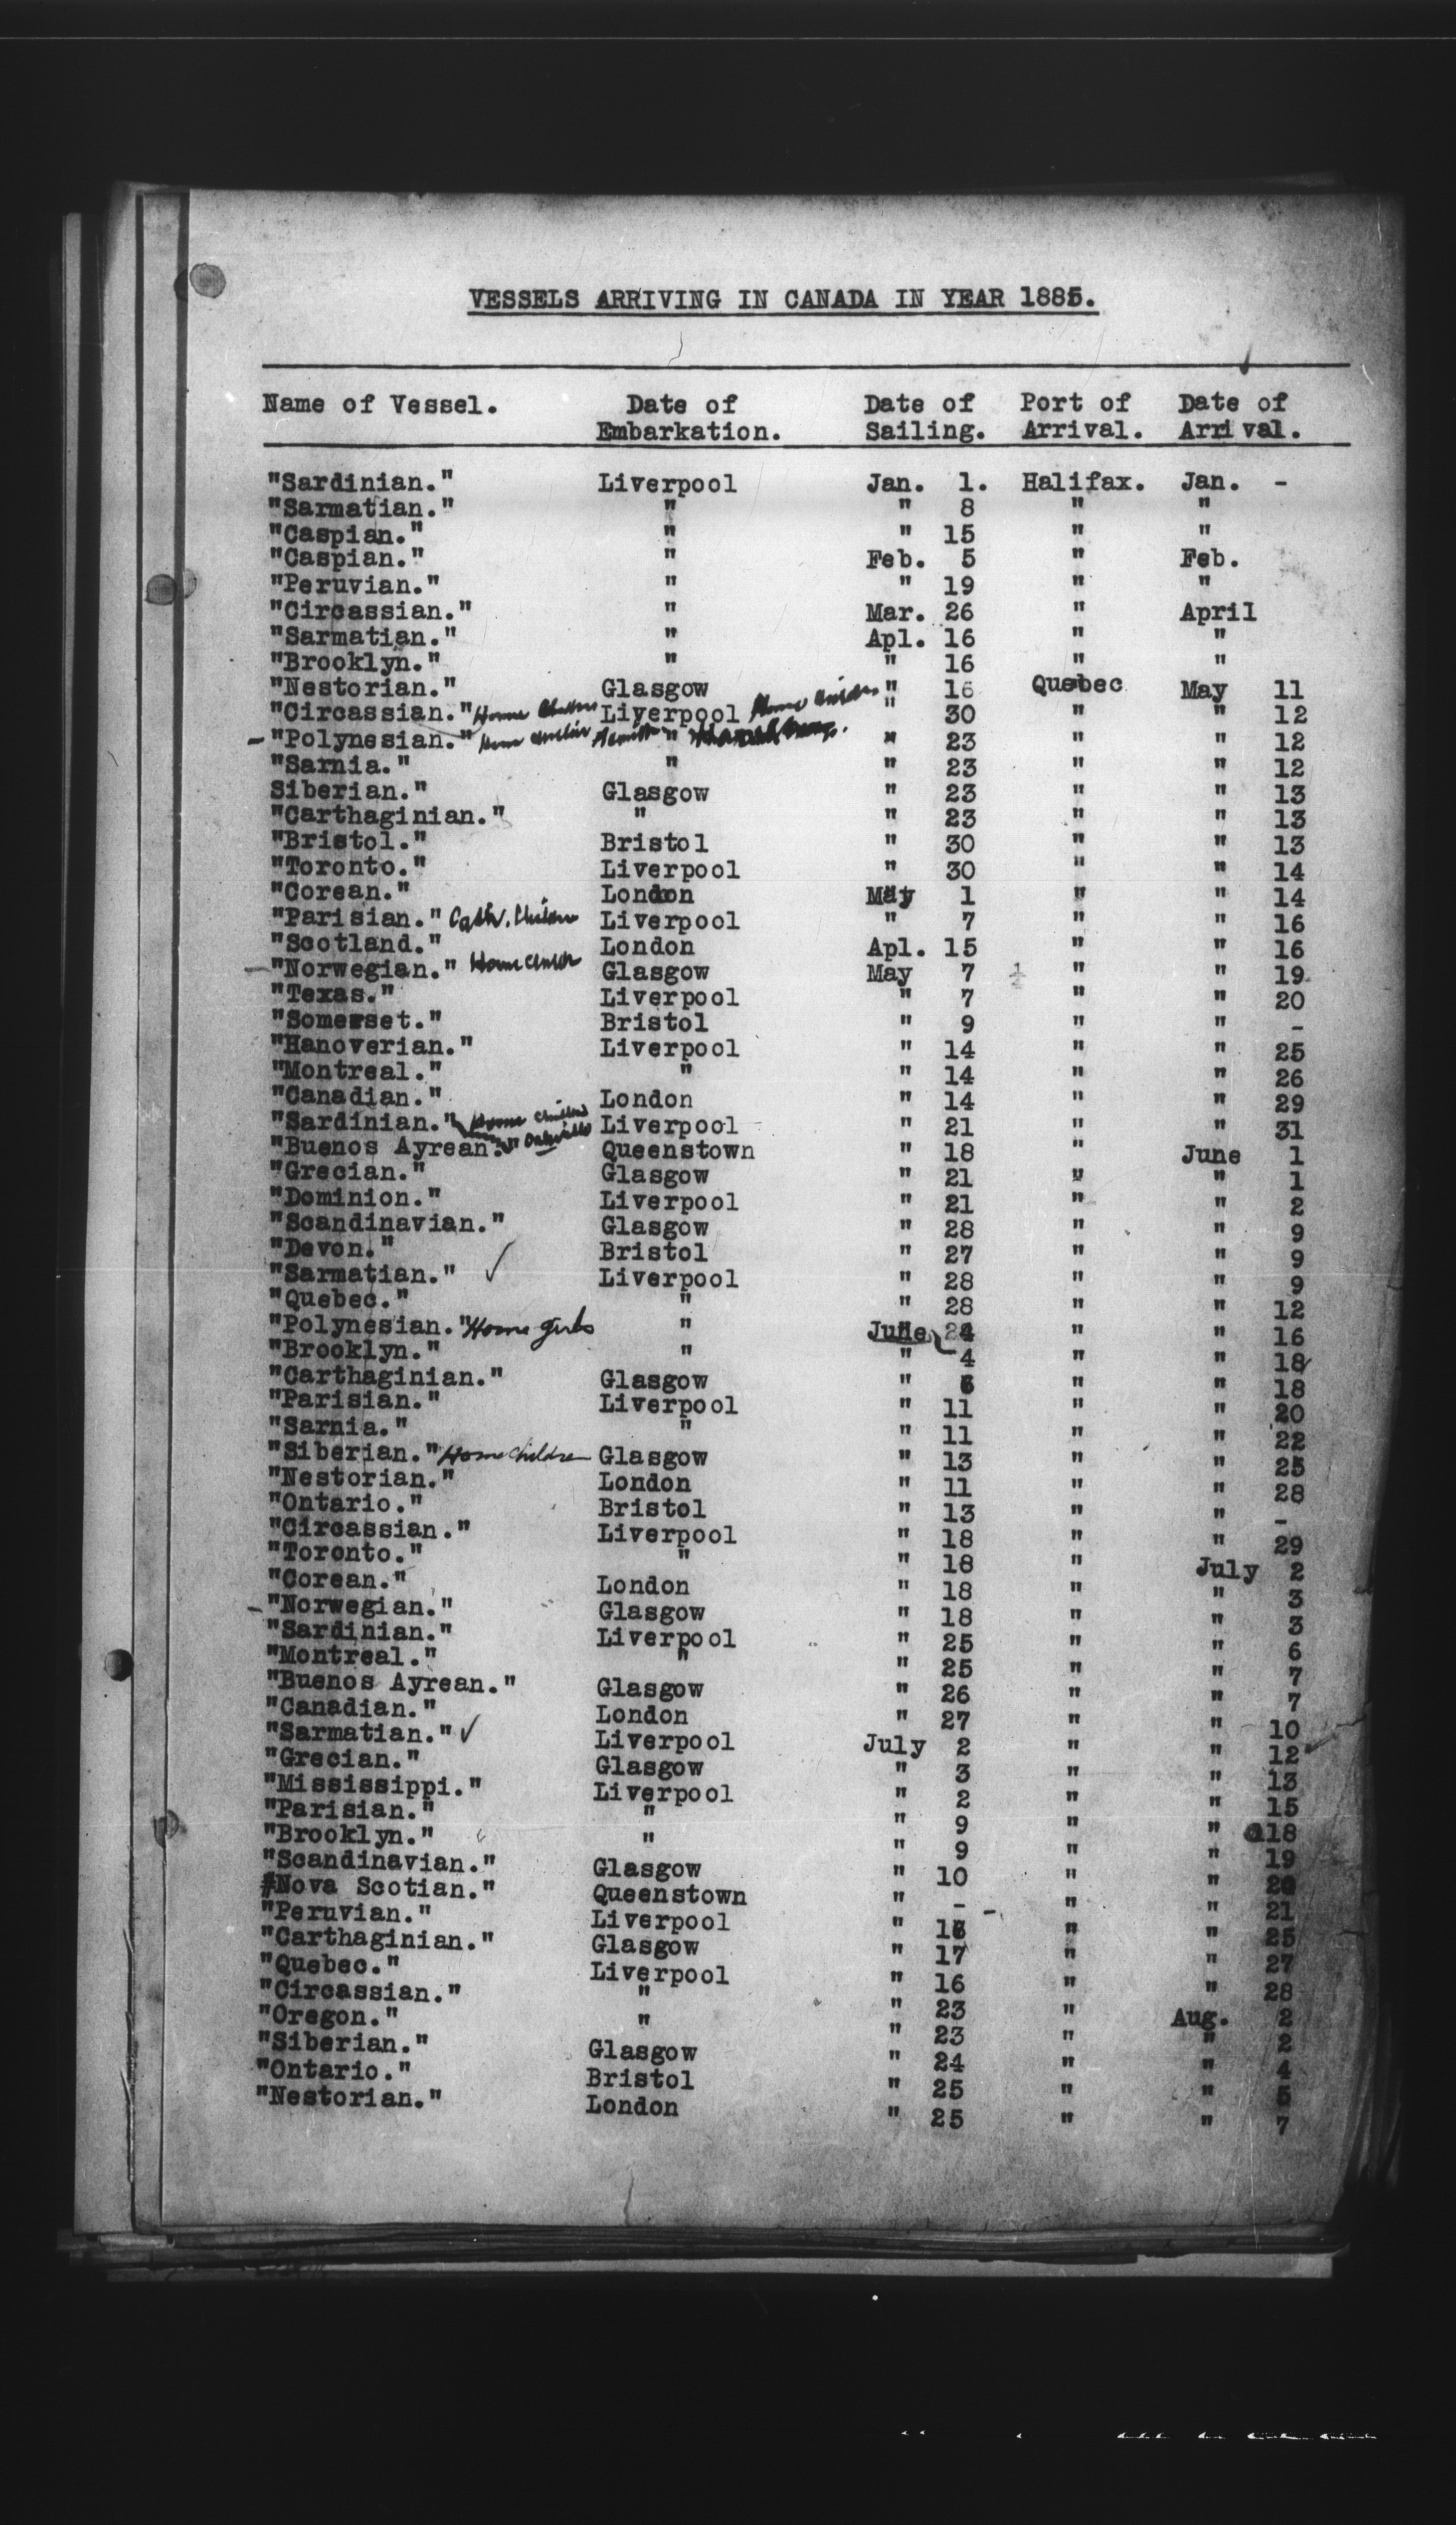 VESSELS ARRIVING IN CANADA IN YEAR 1885.
Name of Vessel. Date of Date of Port of Date of
Embarkation. Sailing. Arrival. Arrival.
"Sardinian." Liverpool Jan. 1. Halifax. Jan. -
"Sarmatian." " " 8 " "
"Caspian." " " 15 " "
"Caspian." " Feb. 5 " Feb.
"Peruvian." " " 19 " "
"Circassian." " Mar. 26 " April
"Sarmatian." " Apl. 16 " "
"Brooklyn." " " 16 " "
"Nestorian." Glasgow " 16 Quebec May 11
"Circassian." Home Children Liverpool Home Children " 30 " " 12
- "Polynesian." Home " " 23 " " 12
"Sarnia." " " 23 " " 12
Siberian." Glasgow " 23 " " 13
"Carthaginian." " " 23 " " 13
"Bristol." Bristol " 30 " " 13
"Toronto." Liverpool " 30 " " 14
"Corean." London May 1 " " 14
"Parisian." Cath. Children Liverpool " 7 " " 16
"Scotland." London Apl. 15 " " 16
- "Norwegian." Home Glasgow May 7 " " 19
"Texas." Liverpool " 7 " " 20
"Somerset." Bristol " 9 " " -
"Hanoverian." Liverpool " 14 " " 25
"Montreal." " " 14 " " 26
"Canadian." London " 14 " " 29
"Sardinian." Home Children Liverpool " 21 " " 31
"Buenos Ayrean." Queenstown " 18 " June 1
"Grecian." Glasgow " 21 " " 1
"Dominion." Liverpool " 21 " " 2
"Scandinavian." Glasgow " 28 " " 9
"Devon." Bristol " 27 " " 9
"Sarmatian." ✓ Liverpool " 28 " " 9
"Quebec." " " 28 " " 12
"Polynesian." Home girls " June 4 " " 16
"Brooklyn." " " 4 " " 18
"Carthaginian." Glasgow " " " 18
"Parisian." Liverpool " 11 " " 20
"Sarnia." " " 11 " " 22
"Siberian." Home Children Glasgow " 13 " " 25
"Nestorian." London " 11 " " 28
"Ontario." Bristol " 13 " " -
"Circassian." Liverpool " 18 " " 29
"Toronto." " " 18 " July 2
"Corean." London " 18 " " 3
- "Norwegian." Glasgow " 18 " " 3
"Sardinian." Liverpool " 25 " " 6
"Montreal." " " 25 " " 7
"Buenos Ayrean." Glasgow " 26 " " 7
"Canadian." London " 27 " " 10
"Sarmatian." ✓ Liverpool July 2 " " 12
"Grecian." Glasgow " 3 " " 13
"Mississippi." Liverpool " 2 " " 15
"Parisian." " " 9 " " 18
"Brooklyn." " " 9 " " 19
"Scandinavian." Glasgow " 10 " " 20
"Nova Scotian." Queenstown " - " " 21
"Peruvian." Liverpool " 16 " " 25
"Carthaginian." Glasgow " 17 " " 27
"Quebec." Liverpool " 16 " " 28
"Circassian." " " 23 " Aug. 2
"Oregon." " " 23 " " 2
"Siberian." Glasgow " 24 " " 4
"Ontario." Bristol " 25 " " 5
"Nestorian." London " 25 " " 7